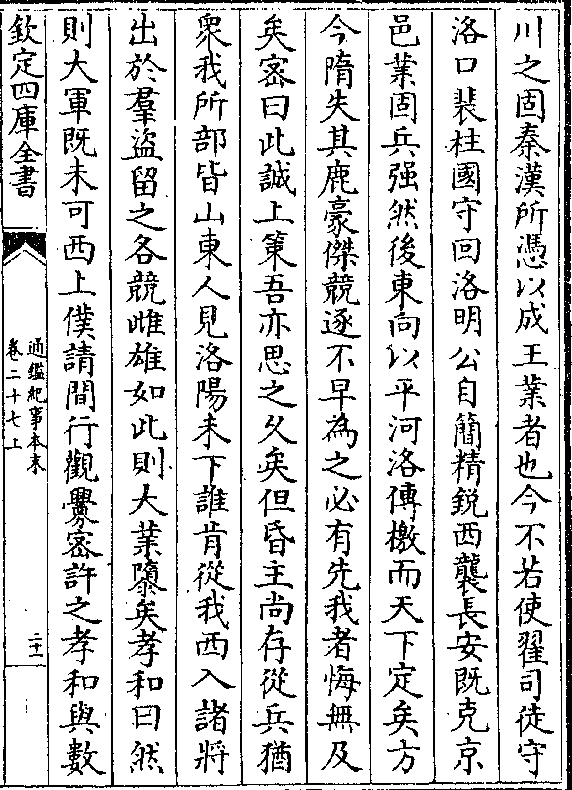 川之固秦漢所憑以成王業者也今不若使翟司徒守
洛口裴柱國守回洛明公自簡精鋭西襲長安既克京
邑業固兵强然後東向以平河洛傳檄而天下定矣方
今隋失其鹿豪傑競逐不早為之必有先我者悔無及
矣密曰此誠上策吾亦思之久矣但昏主尚存從兵猶
衆我所部皆山東人見洛陽未下誰肯從我西入諸將
出於羣盜留之各競雌雄如此則大業隳矣孝和曰然
則大軍既未可西上僕請間行觀釁密許之孝和與數
欽定四庫全書
通鑑紀事本末
卷二十七上
二十一